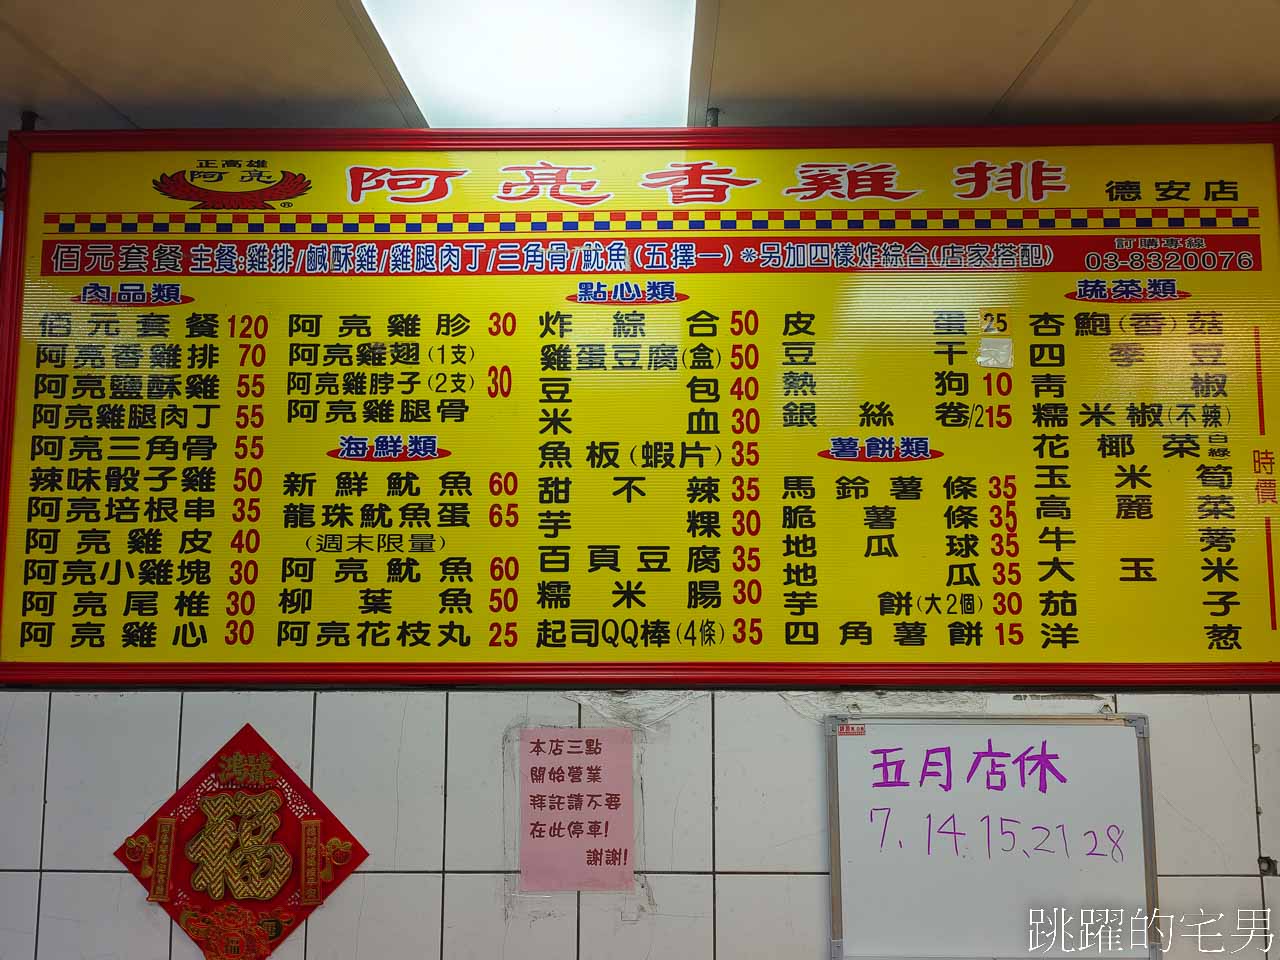 正高雄
阿亮
®
阿亮香雞排 德安店
佰元套餐 主餐:雞排/鹹酥雞/雞腿肉丁/三角骨/魷魚(五擇一)※另加四樣炸綜合(店家搭配)
訂購專線
03-8320076
肉品類
佰元套餐 120
阿亮香雞排 70
阿亮鹽酥雞 55
阿亮雞腿肉丁 55
阿亮三角骨 55
辣味骰子雞 50
阿亮培根串 35
阿亮雞皮 40
阿亮小雞塊 30
阿亮尾椎 30
阿亮雞心 30
阿亮雞胗 30
阿亮雞翅(1支)
阿亮雞脖子(2支) 30
阿亮雞腿骨
海鮮類
新鮮魷魚 60
龍珠魷魚蛋 65
(週末限量)
阿亮魷魚 60
柳葉魚 50
阿亮花枝丸 25
點心類
炸綜合 50
雞蛋豆腐(盒) 50
豆包 40
米血 30
魚板(蝦片) 35
甜不辣 35
芋粿 30
百頁豆腐 35
糯米腸 30
起司QQ棒(4條) 35
皮蛋 25
豆干
熱狗 10
銀絲卷/2 15
薯餅類
馬鈴薯條 35
脆薯條 35
地瓜球 35
地瓜 35
芋餅(大2個) 30
四角薯餅 15
蔬菜類
杏鮑(香)菇
四季豆
青椒
糯米椒(不辣)
花椰菜白綠
玉米筍
高麗菜
牛蒡
大玉米
茄子
洋蔥
時價
本店三點
開始營業
拜託請不要
在此停車!
謝謝!
五月店休
7、14、15、21 28
福
跳躍的宅男